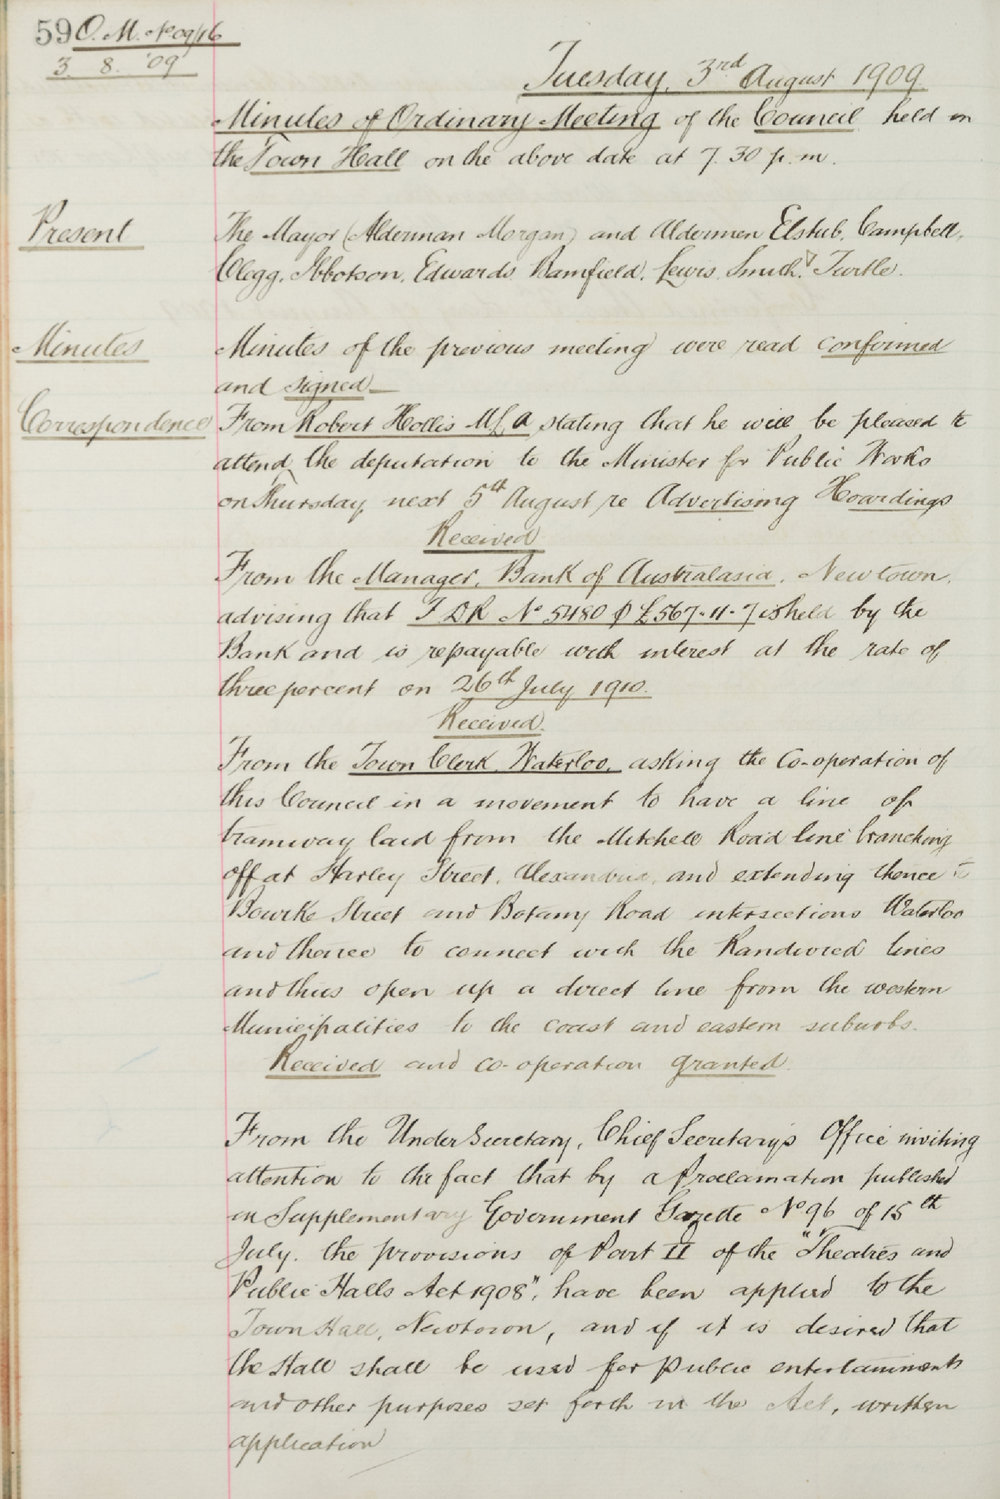 59 O. M. No 09/16
3. 8. '09
Tuesday, 3rd August 1909.
Minutes of Ordinary Meeting of the Council held in
the Town Hall on the above date at 7.30 p.m.
Present
The Mayor (Alderman Morgan) and Aldermen Elstub, Campbell,
Clegg, Ibbotson, Edwards, Bamfield, Lewis, Smith, Turtle.
Minutes
Minutes of the previous meeting were read confirmed
and signed
Correspondence
From Robert Hollis M.L.A stating that he will be pleased to
attend the deputation to the Minister for Public Works
on Thursday next 5th August re Advertising Hoardings
Received
From the Manager, Bank of Australasia, Newtown,
advising that F DR No 5480 £567-11-7 is held by the
Bank and is repayable with interest at the rate of
three percent on 26th July 1910.
Received.
From the Town Clerk, Waterloo, asking the Co-operation of
this Council in a movement to have a line of
tramway laid from the Mitchell Road line branching
off at Harley Street, Alexandria, and extending thence to
Bourke Street and Botany Road intersections Waterloo
and thence to connect with the Randwick lines
and thus open up a direct line from the western
Municipalities to the coast and eastern suburbs.
Received and co-operation granted.
From the Under Secretary, Chief Secretary's Office inviting
attention to the fact that by a Proclamation published
in Supplementary Government Gazette No 96 of 15th
July. the provisions of Part II of the "Theatres and
Public Halls Act 1908", have been applied to the
Town Hall, Newtown, and if it is desired that
the Hall shall be used for public entertainments
and other purposes set forth in the Act, written
application